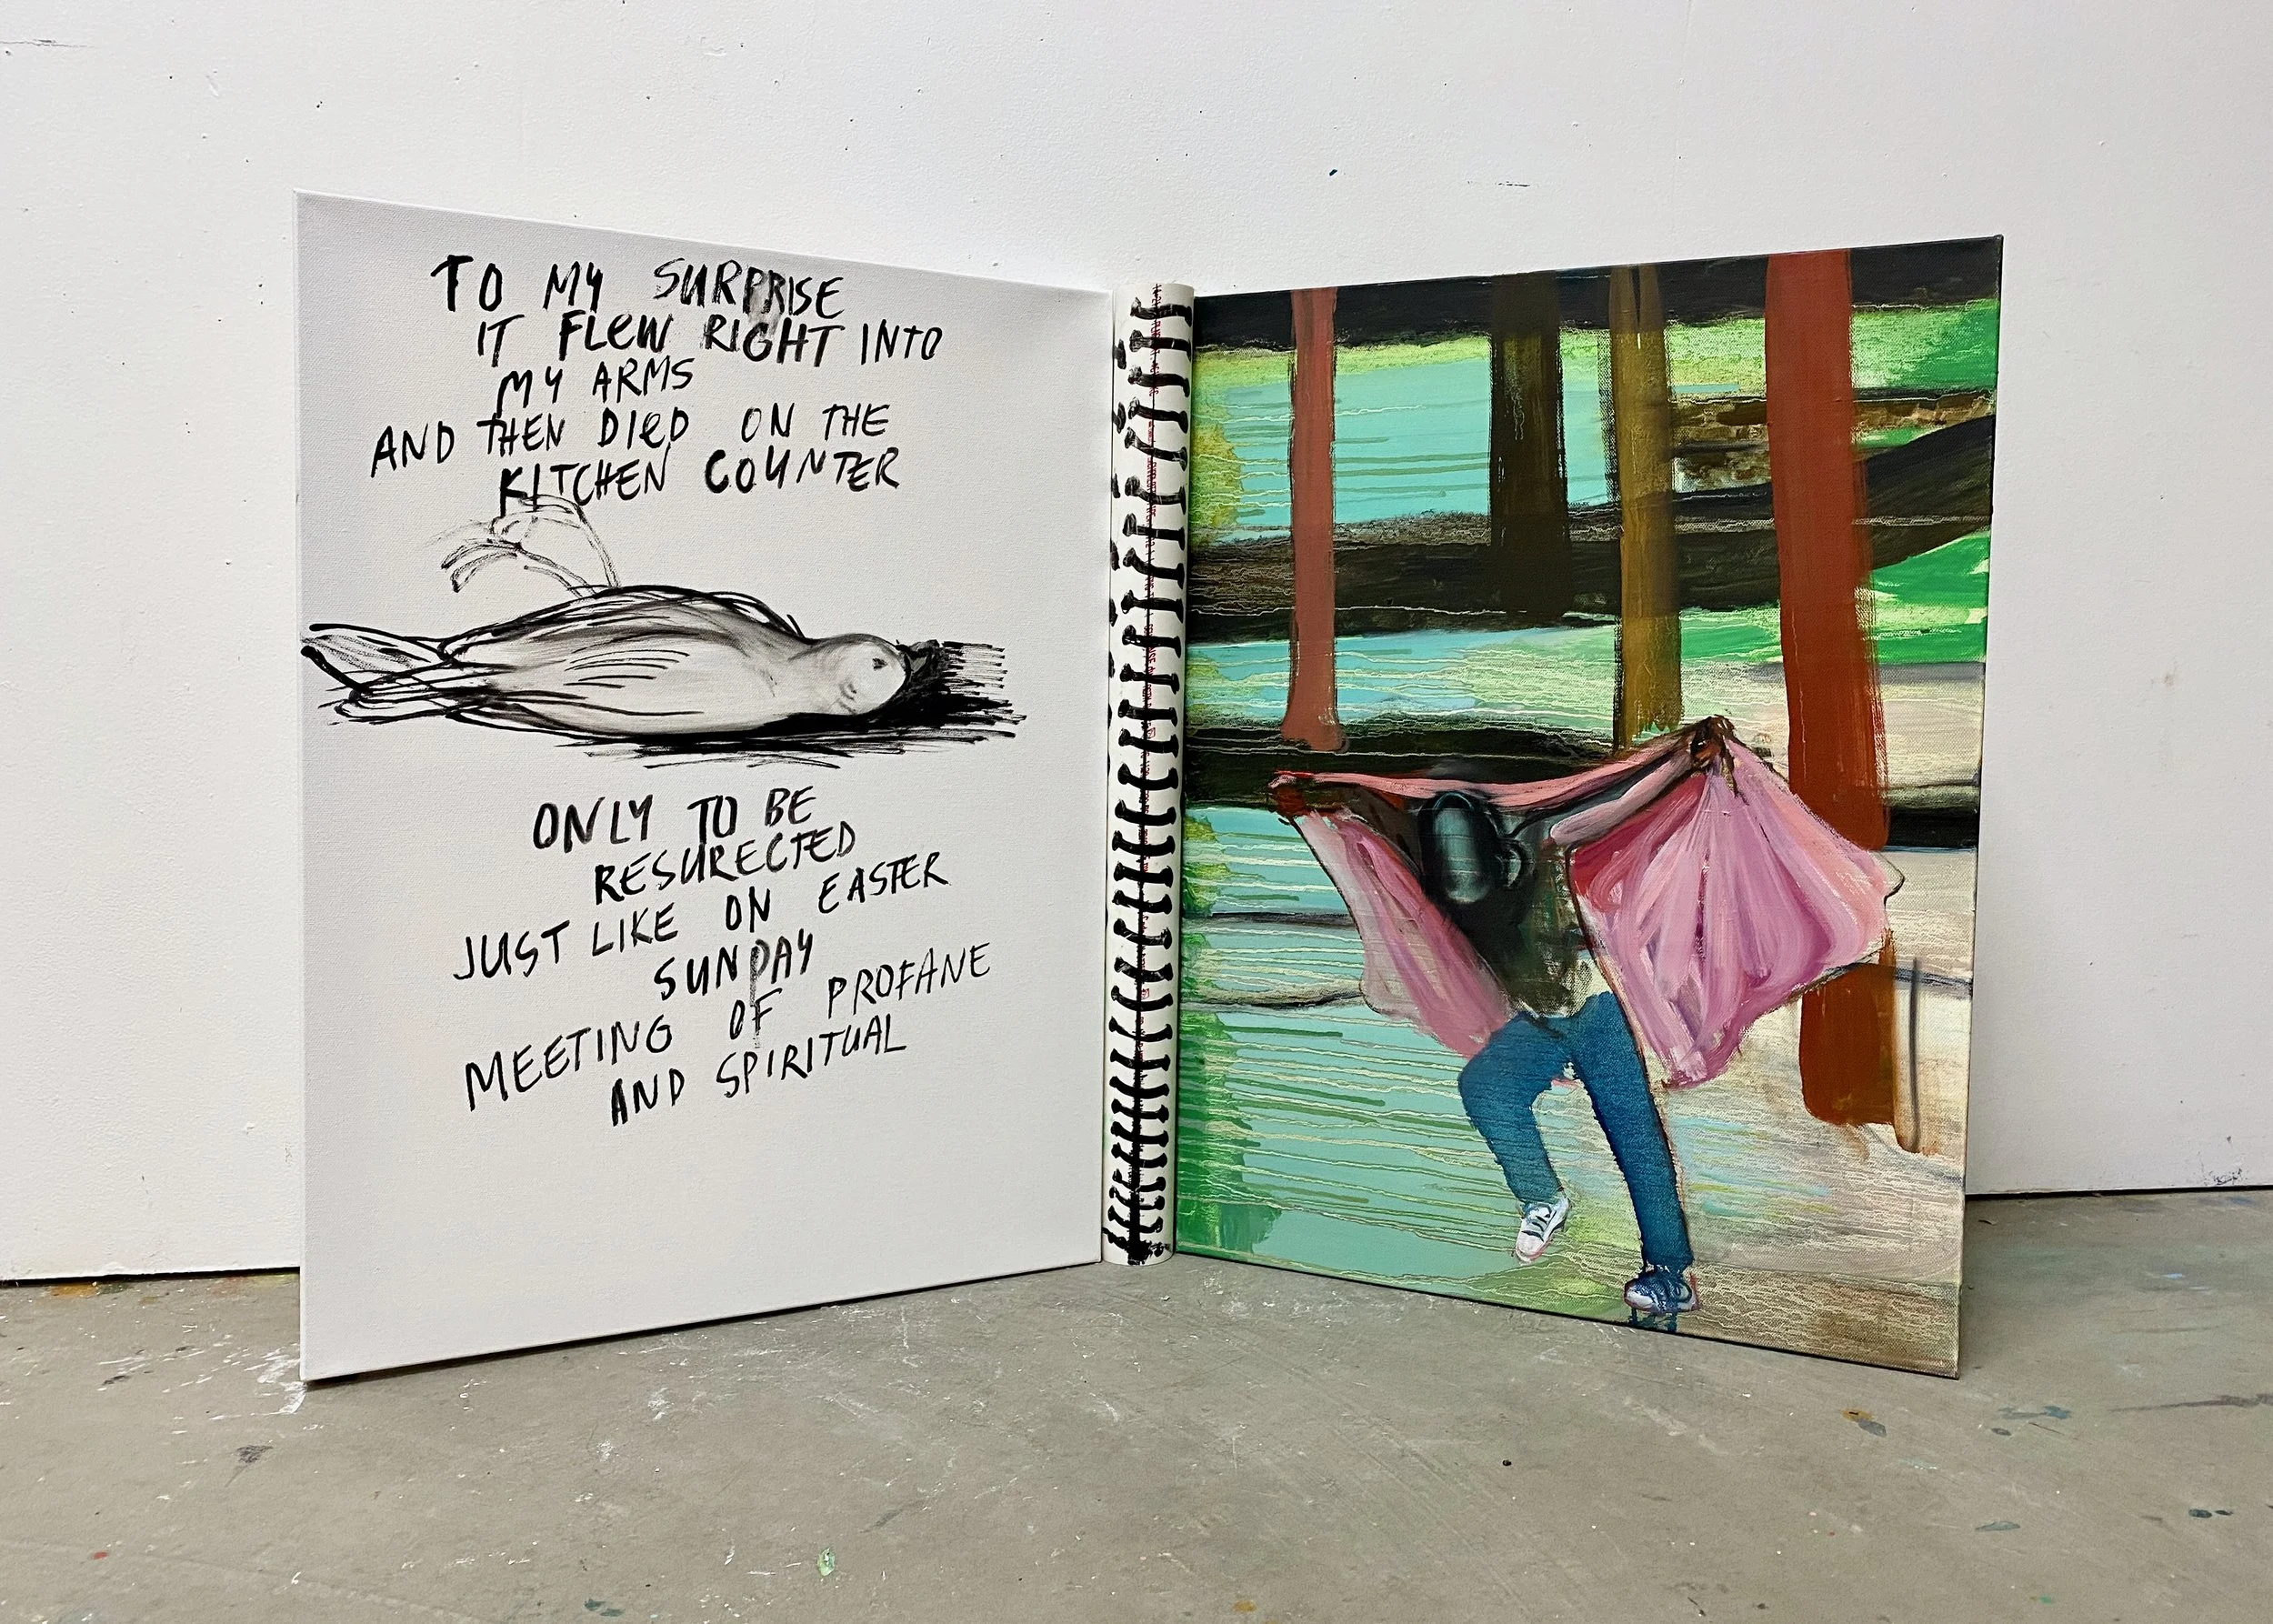 TO MY SURPRISE
IT FLEW RIGHT INTO
MY ARMS
AND THEN DIED ON THE
KITCHEN COUNTER
ONLY TO BE
RESURECTED
JUST LIKE ON EASTER
SUNDAY
MEETING OF PROFANE
AND SPIRITUAL